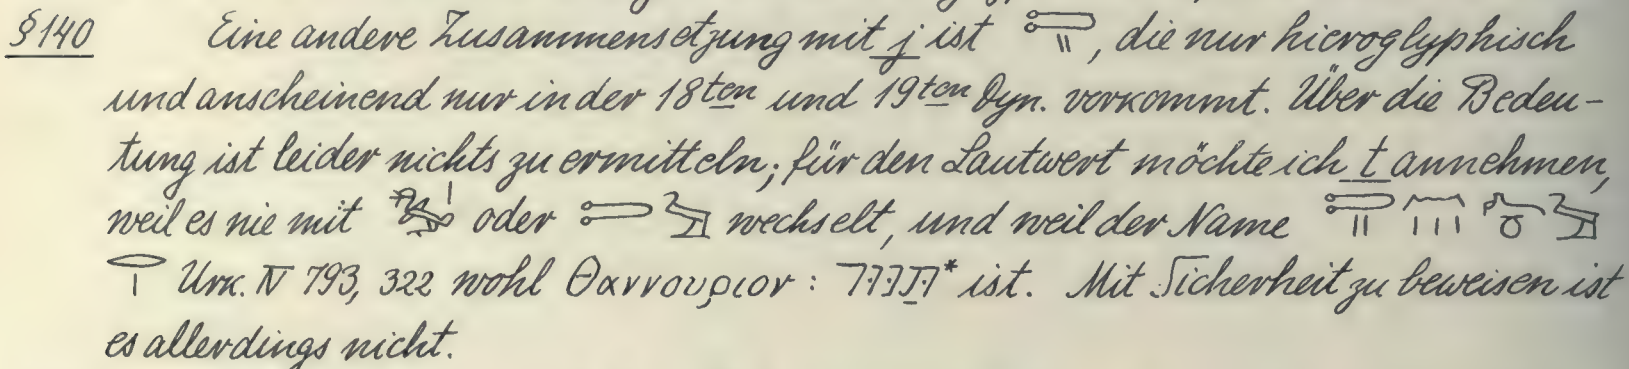 §140 Eine andere Zusammensetzung mit j ist , die nur hieroglyphisch
und anscheinend nur in der 18ten und 19ten Dyn. vorkommt. Über die Bedeu-
tung ist leider nichts zu ermitteln; für den Lautwert möchte ich t annehmen,
weil es nie mit oder wechselt, und weil der Name
Urk. IV 793, 322 wohl Θαννουριον : * ist. Mit Sicherheit zu beweisen ist
es allerdings nicht.